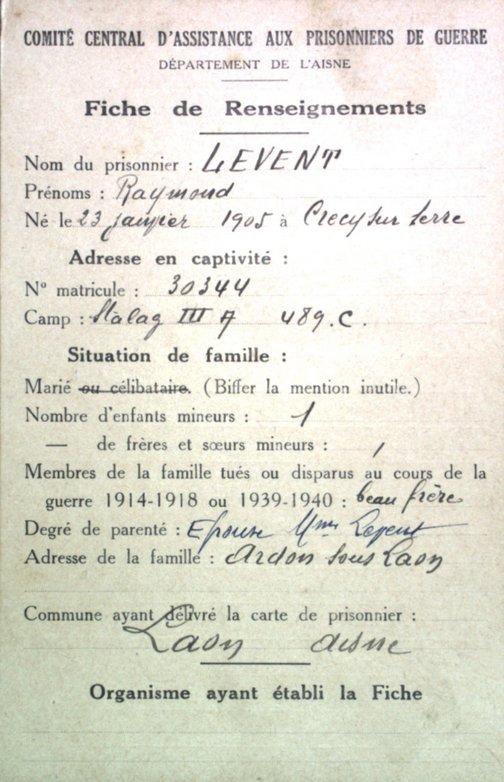 COMITÉ CENTRAL D'ASSISTANCE AUX PRISONNIERS DE GUERRE
DÉPARTEMENT DE L'AISNE
Fiche de Renseignements
Nom du prisonnier : LEVENT
Prénoms : Raymond
Né le 23 janvier 1905 à Crecy sur serre
Adresse en captivité :
N° matricule : 30344
Camp : Stalag III A 489.C.
Situation de famille :
Marié ou célibataire. (Biffer la mention inutile.)
Nombre d'enfants mineurs : 1
— de frères et sœurs mineurs : /
Membres de la famille tués ou disparus au cours de la
guerre 1914-1918 ou 1939-1940 : beau frère
Degré de parenté : Epouse Mme Levent
Adresse de la famille : Ardon sous Laon
Commune ayant délivré la carte de prisonnier :
Laon aisne
Organisme ayant établi la Fiche